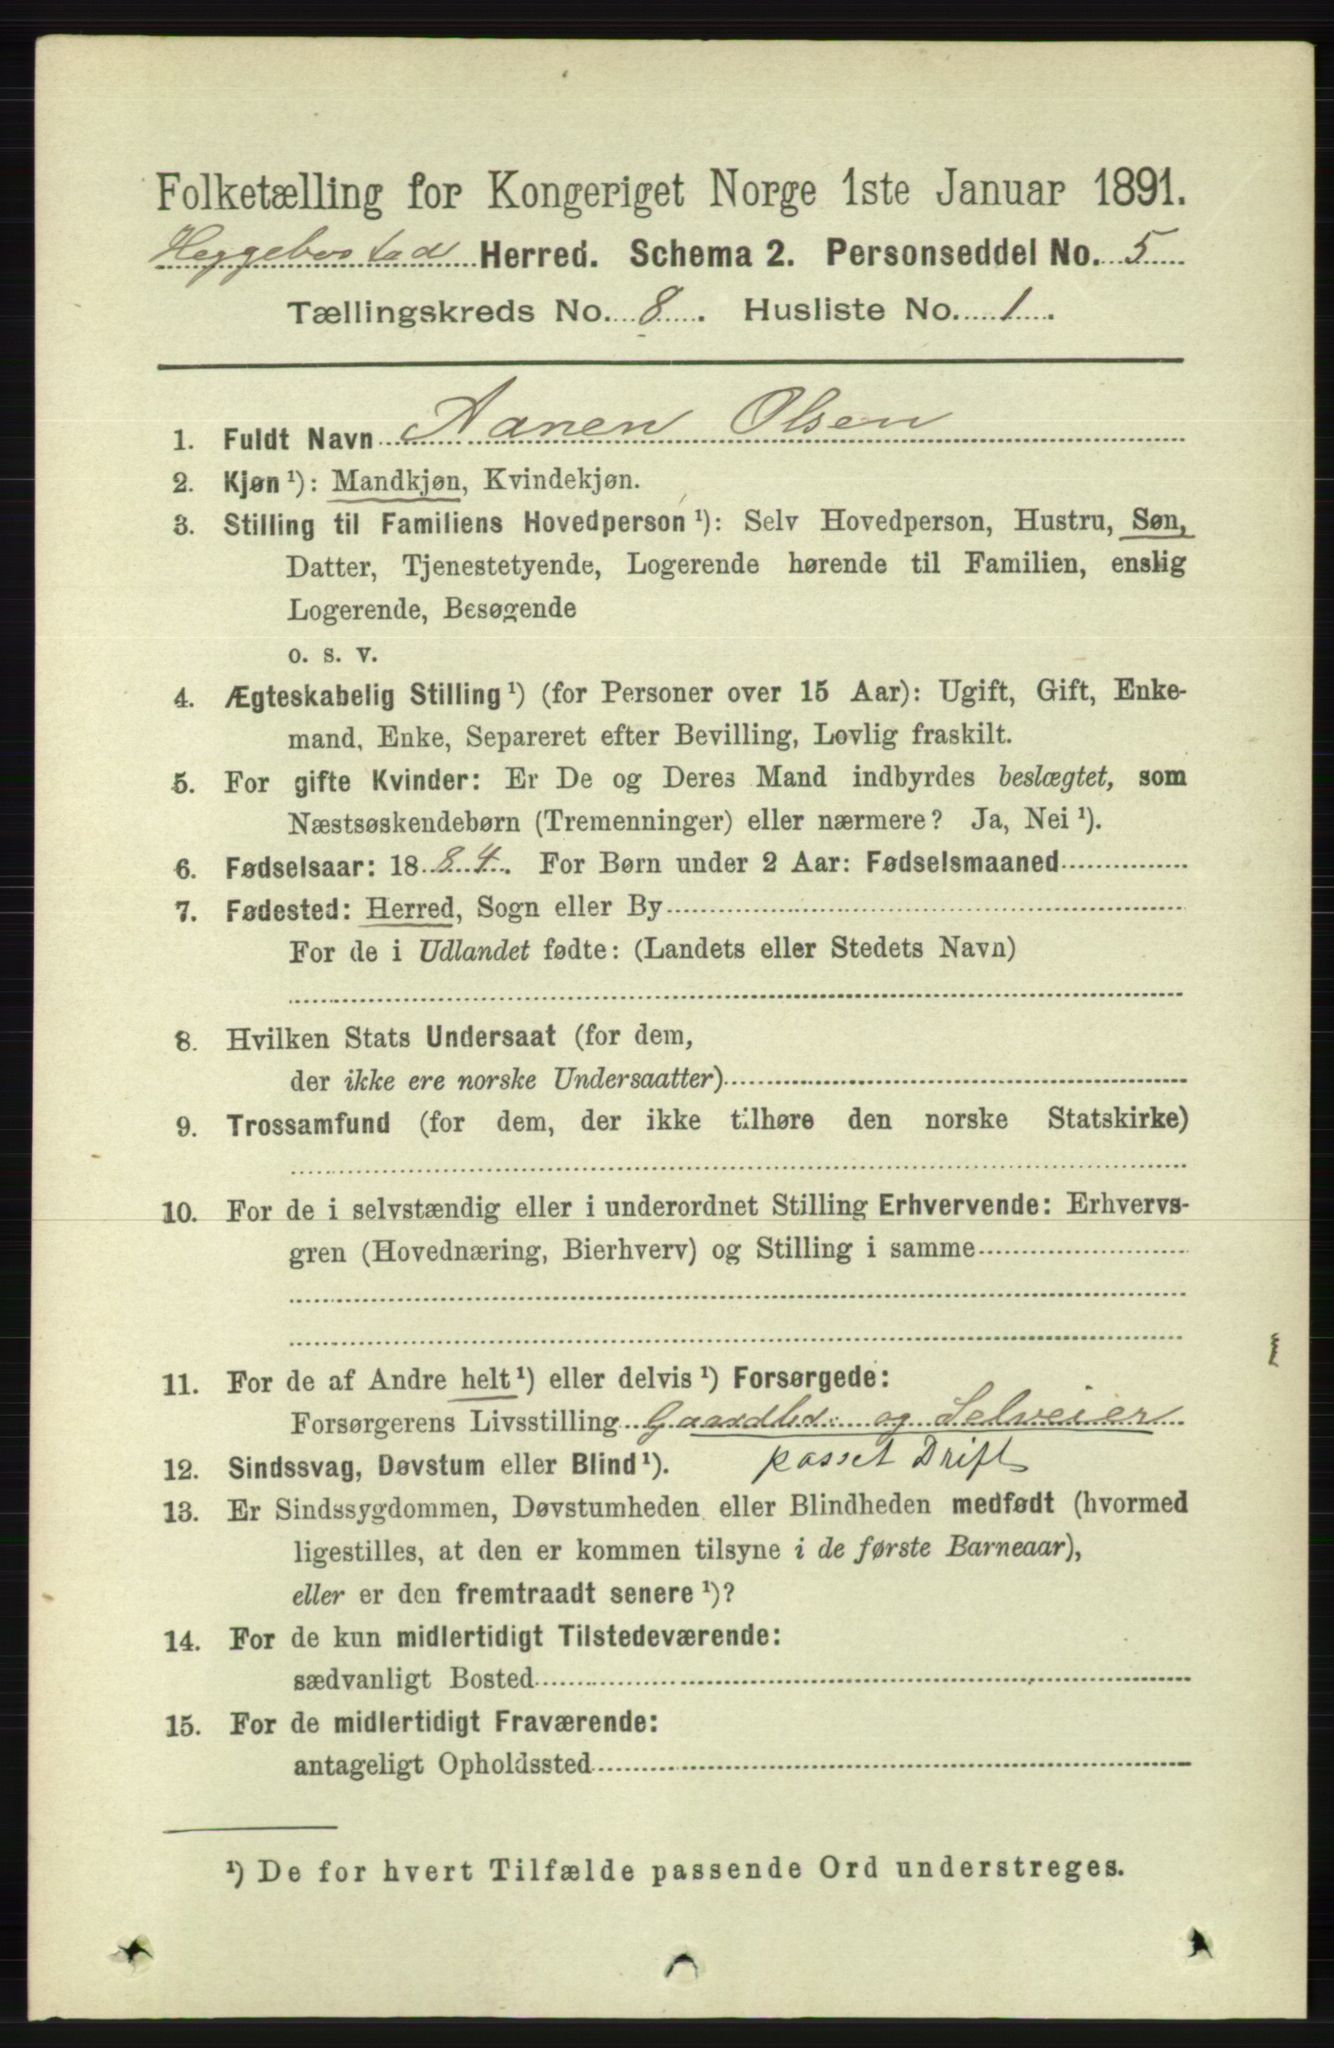 Folketælling for Kongeriget Norge 1ste Januar 1891.
Heggebostad Herred. Schema 2. Personseddel No. 5
Tællingskreds No. 8. Husliste No. 1.
1. Fuldt Navn Aanen Olsen
2. Kjøn ¹): Mandkjøn, Kvindekjøn.
3. Stilling til Familiens Hovedperson ¹): Selv Hovedperson, Hustru, Søn,
Datter, Tjenestetyende, Logerende hørende til Familien, enslig
Logerende, Besøgende
o. s. v.
4. Ægteskabelig Stilling ¹) (for Personer over 15 Aar): Ugift, Gift, Enke-
mand, Enke, Separeret efter Bevilling, Lovlig fraskilt.
5. For gifte Kvinder: Er De og Deres Mand indbyrdes beslægtet, som
Næstsøskendebørn (Tremenninger) eller nærmere? Ja, Nei ¹).
6. Fødselsaar: 1884. For Børn under 2 Aar: Fødselsmaaned
7. Fødested: Herred, Sogn eller By
For de i Udlandet fødte: (Landets eller Stedets Navn)
8. Hvilken Stats Undersaat (for dem,
der ikke ere norske Undersaatter)
9. Trossamfund (for dem, der ikke tilhøre den norske Statskirke)
10. For de i selvstændig eller i underordnet Stilling Erhvervende: Erhvervs-
gren (Hovednæring, Bierhverv) og Stilling i samme
11. For de af Andre helt ¹) eller delvis ¹) Forsørgede:
Forsørgerens Livsstilling Gaardbr: og Selveier
12. Sindssvag, Døvstum eller Blind ¹). passet Drift
13. Er Sindssygdommen, Døvstumheden eller Blindheden medfødt (hvormed
ligestilles, at den er kommen tilsyne i de første Barneaar),
eller er den fremtraadt senere ¹)?
14. For de kun midlertidigt Tilstedeværende:
sædvanligt Bosted
15. For de midlertidigt Fraværende:
antageligt Opholdssted
¹) De for hvert Tilfælde passende Ord understreges.